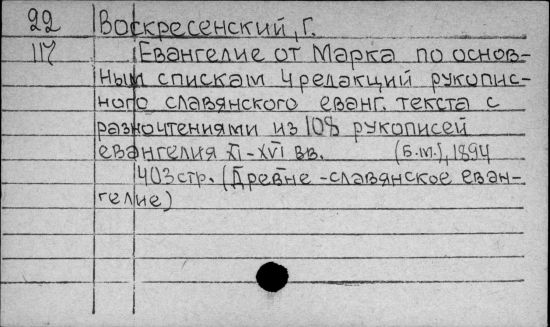 22 Воскресенский, Г.
117 Евангелие от Марка по основ-
ным спискам 4 редакций рукопис-
ного славянского еванг. текста с
разночтениями из 108 рукописей
евангелия XI-XVI вв. (Б.м.), 1894
403 стр. (Древне-славянское еван-
гелие)